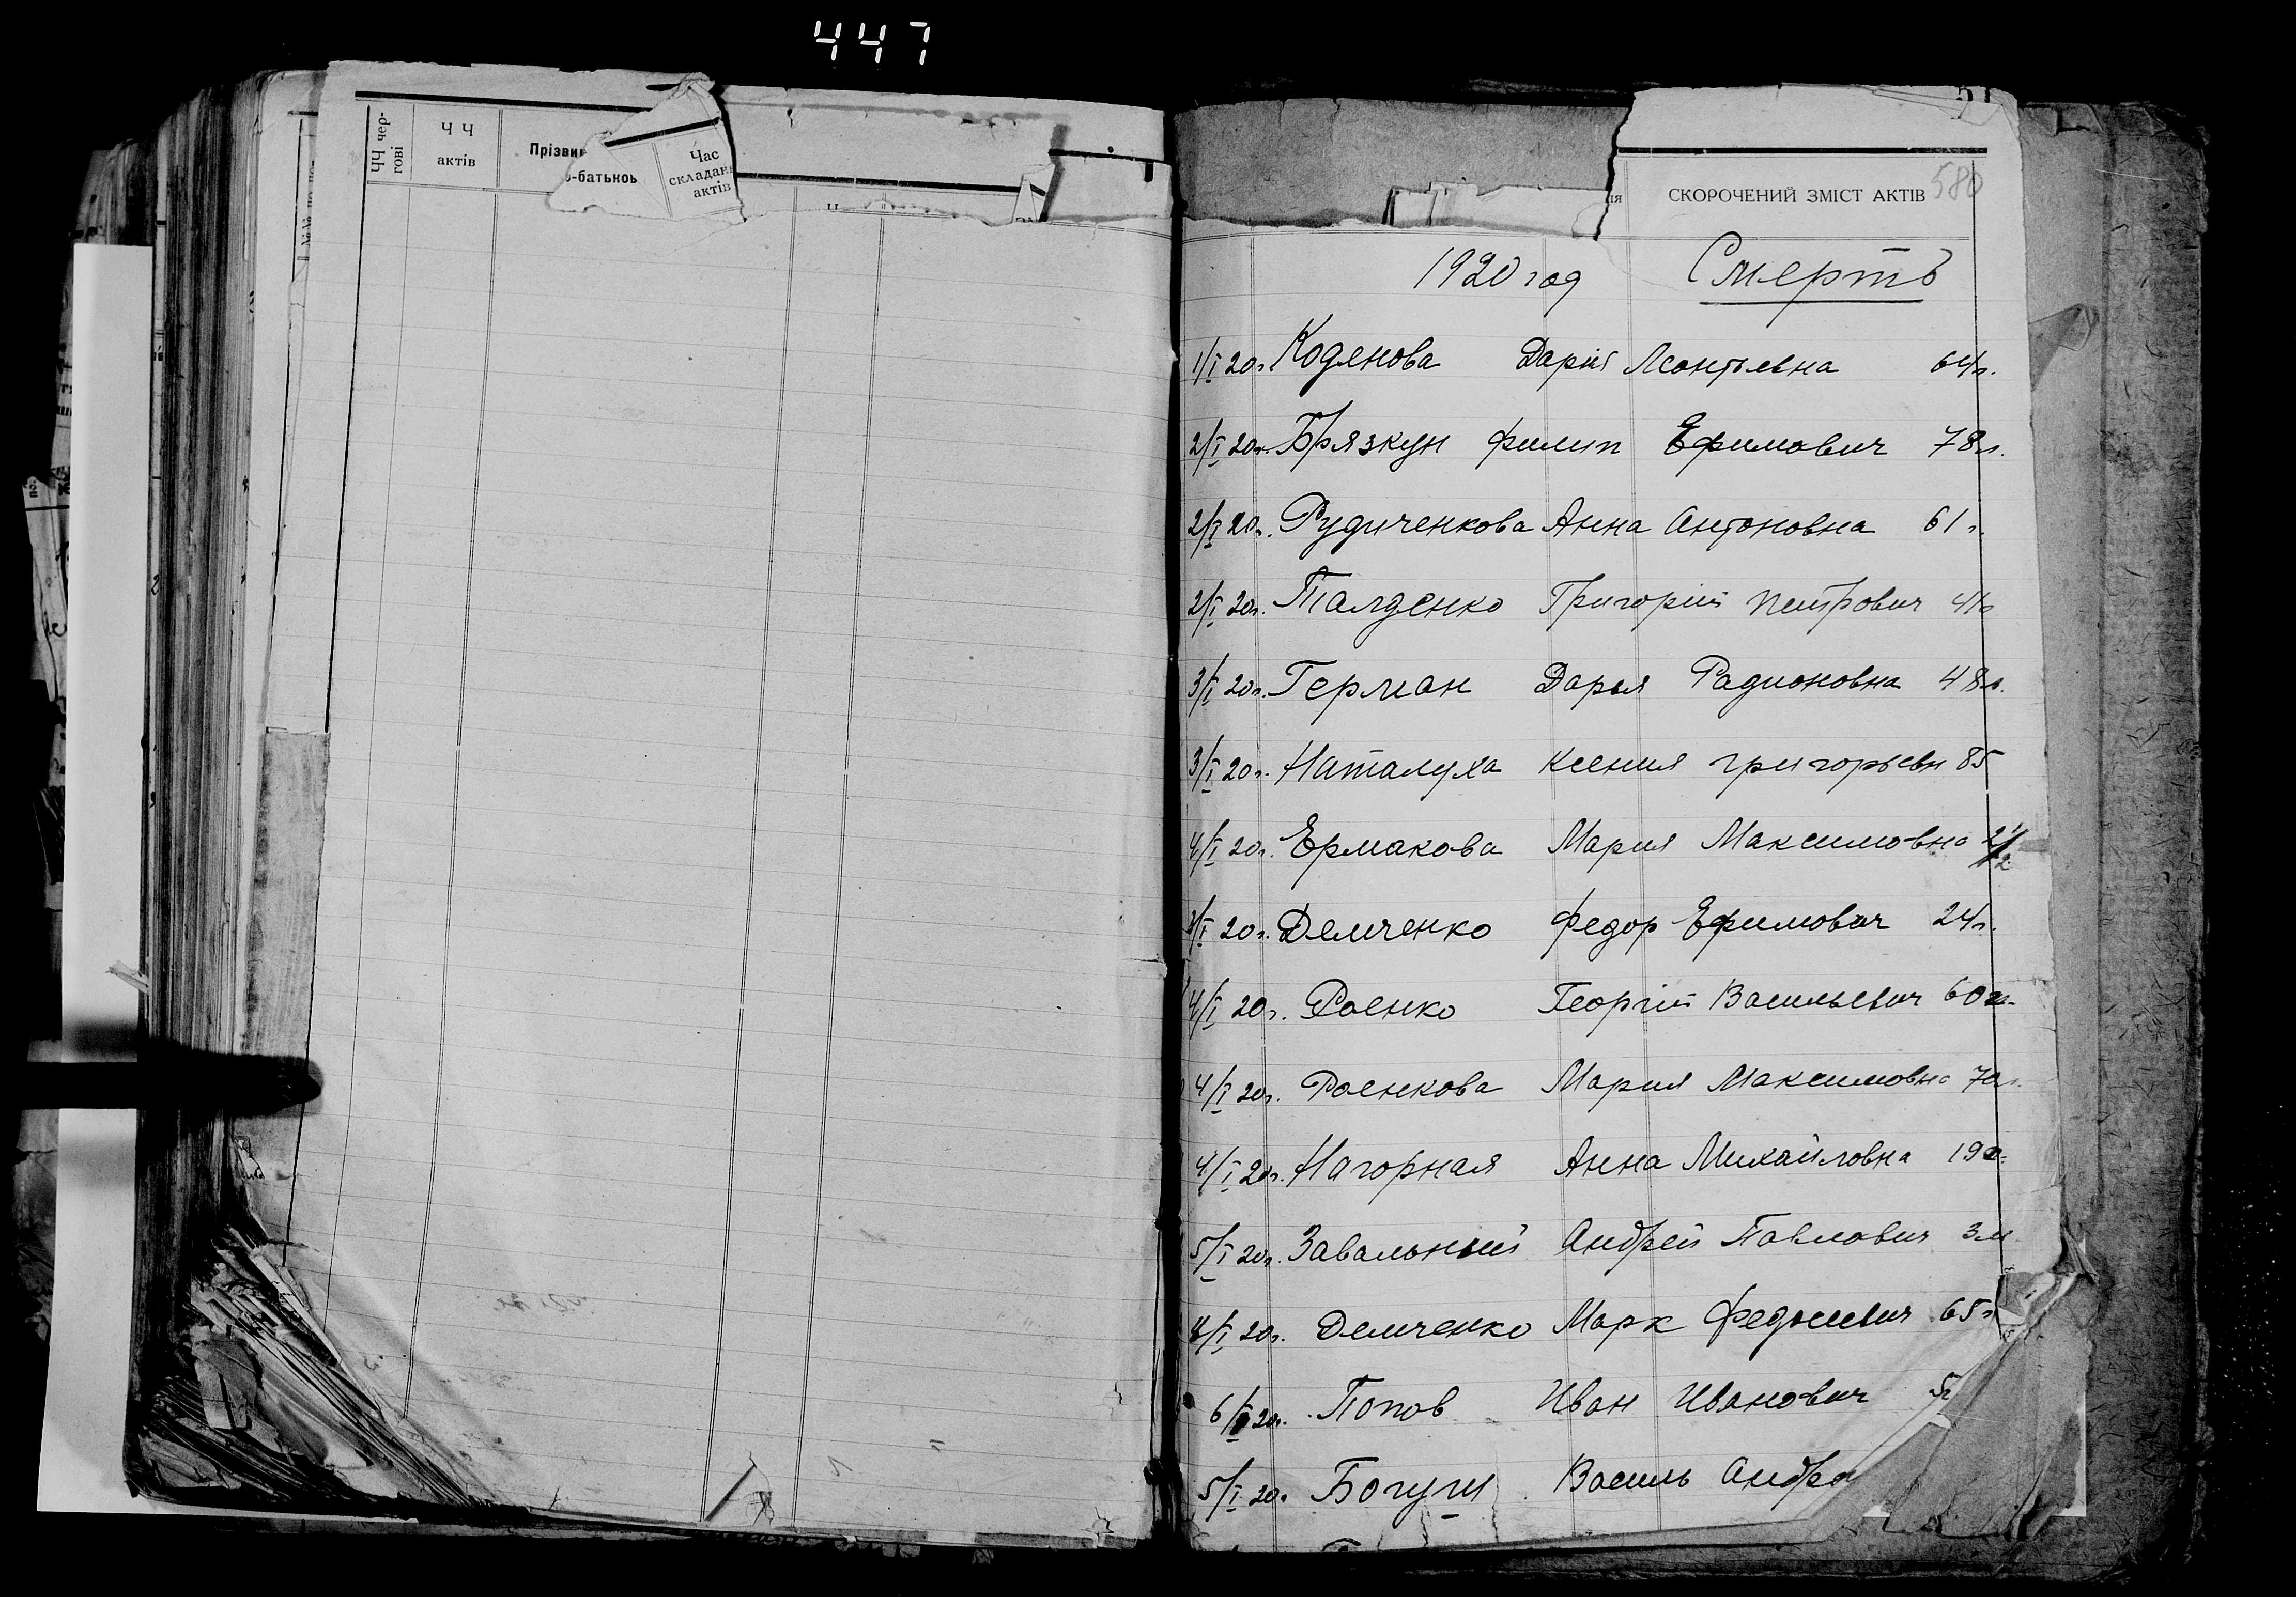 447
ЧЧ чер-
гові
Ч Ч
актів
Прізви
о-батьков
Час
складан
актів
51
ія
СКОРОЧЕНИЙ ЗМІСТ АКТІВ
580
1920 год Смерть
1/I 20г. Коденова Дарія Леонтьевна 64г.
2/I 20г. Брязкун Филип Ефимович 78л.
2/I 20г. Рудиченкова Анна Антоновна 61г.
2/I 20г. Талденко Григорий Петрович 41г
3/I 20г. Герман Дарья Радионовна 48л.
3/I 20г. Наталуха Ксения Григорьевн 85
4/I 20г. Ермакова Мария Максимовна 2 1/2
/I 20г. Демченко Федор Ефимович 24г.
4/I 20г. Роенко Георгій Васильевич 60л.
4/I 20г. Роенкова Мария Максимовна 70л.
4/I 20г. Нагорная Анна Михайловна 19
5/I 20г. Завальный Андрей Павлович 3м
4/I 20г. Демченко Марк 65л
6/I 20г. Попов Иван Иванович
5/I 20г. Богуш Василь Андре